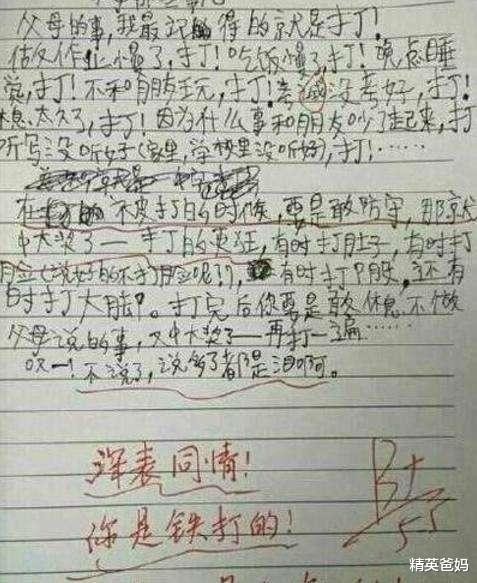 父母的事,我最记得的就是打!
做作业慢了,打!吃饭慢了,打!晚点睡
觉,打!不和朋友玩,打!考试没考好,打!
休息太久了,打!因为什么事和朋友吵了起来,打
听写没听好(家里,学校里没听好),打!……
在被打的时候,要是敢防守,那就
中大奖了——打的更狂,有时打肚子,有时打
脸(说好的不打脸呢!?),有时打腿,还有
时打大腿。打完后你要是敢休息不做
父母说的事,又中大奖了——再打一遍……
哎!不说了,说多了都是泪啊。
深表同情!
你是铁打的!
B+
精英爸妈